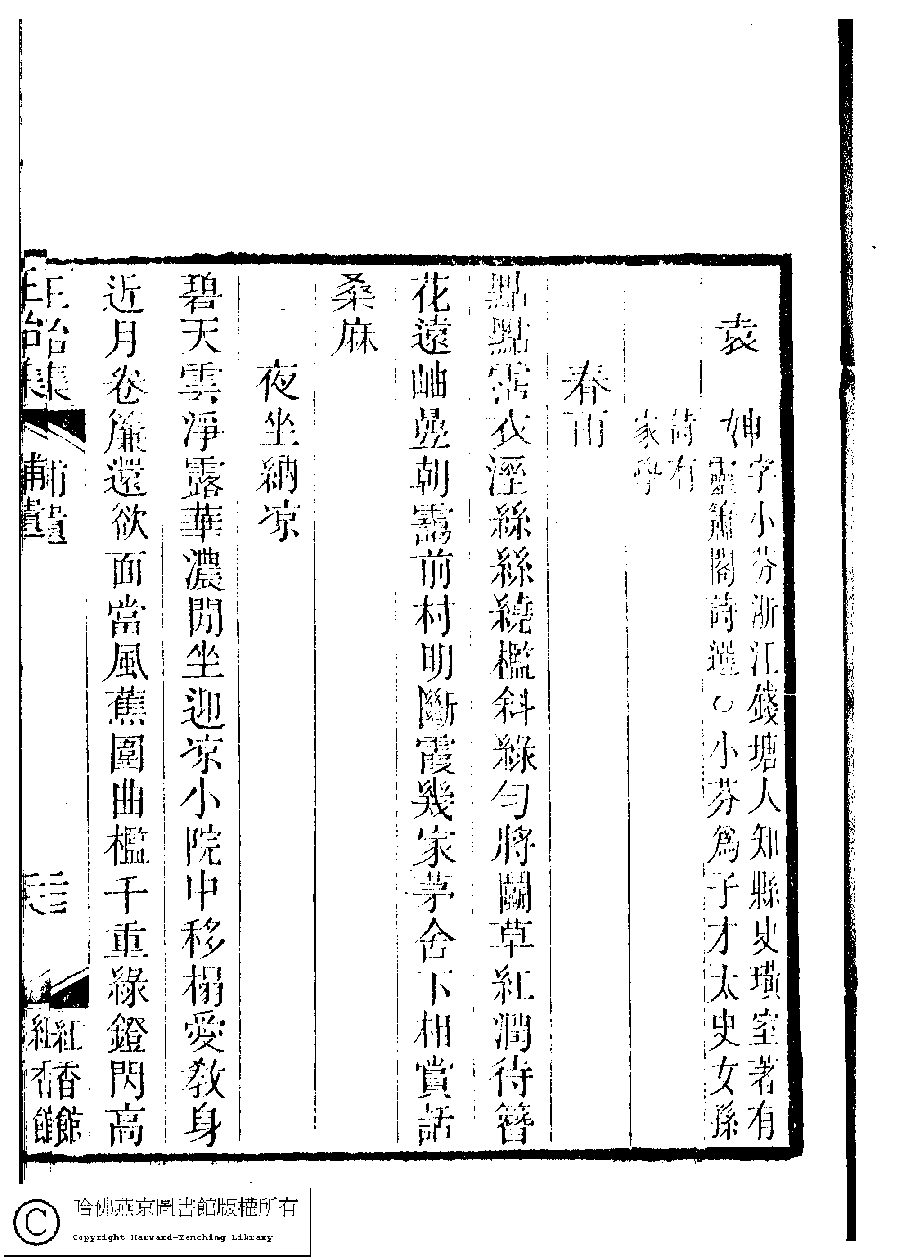 袁 妽字小芬浙江錢塘人知縣史璜室著有
靈簫閣詩選○小芬為子才太史女孫
詩有
家學
春雨
點點霑衣溼絲絲繞檻斜綠勻將鬬草紅潤待簪
花遠岫㬎朝靄前村明斷霞幾家茅舍下相賞話
桑麻
夜坐納凉
碧天雲淨露華濃閒坐迎凉小院中移榻愛教身
近月卷簾還欲面當風蕉圍曲檻千重綠鐙閃高
補遺
紅香館
哈佛燕京圖書館版權所有
Copyright Harvard-Yenching Library